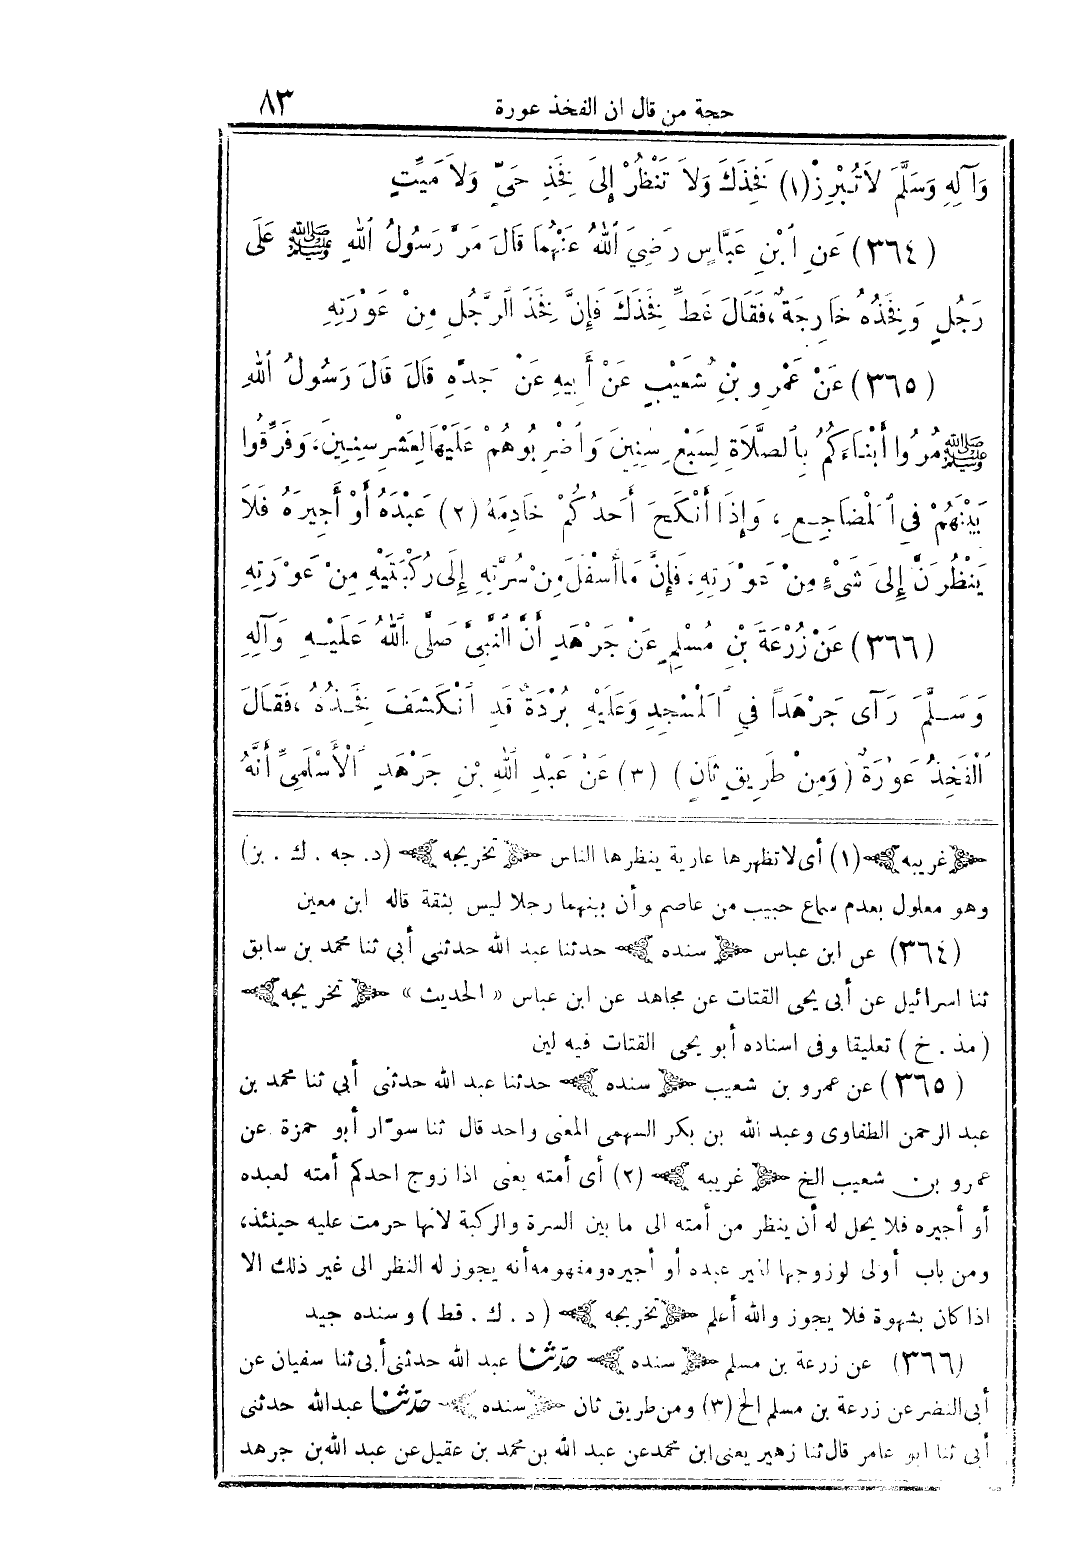 حجة من قال ان الفخذ عورة ٨٣
وَآلِهِ وَسَلَّمَ لَا تُبْرِزْ (١) فَخِذَكَ وَلَا تَنْظُرْ إِلَى فَخِذِ حَيٍّ وَلَا مَيِّتٍ
(٣٦٤) عَنِ ابْنِ عَبَّاسٍ رَضِيَ اللهُ عَنْهُمَا قَالَ مَرَّ رَسُولُ اللهِ ﷺ عَلَى
رَجُلٍ وَفَخِذُهُ خَارِجَةٌ ، فَقَالَ غَطِّ فَخِذَكَ فَإِنَّ فَخِذَ الرَّجُلِ مِنْ عَوْرَتِهِ
(٣٦٥) عَنْ عَمْرِو بْنِ شُعَيْبٍ عَنْ أَبِيهِ عَنْ جَدِّهِ قَالَ قَالَ رَسُولُ اللهِ
ﷺ مُرُوا أَبْنَاءَكُمْ بِالصَّلَاةِ لِسَبْعِ سِنِينَ وَاضْرِبُوهُمْ عَلَيْهَا لِعَشْرِ سِنِينَ ، وَفَرِّقُوا
بَيْنَهُمْ فِي الْمَضَاجِعِ ، وَإِذَا أَنْكَحَ أَحَدُكُمْ خَادِمَهُ (٢) عَبْدَهُ أَوْ أَجِيرَهُ فَلَا
يَنْظُرَنَّ إِلَى شَيْءٍ مِنْ عَوْرَتِهِ ، فَإِنَّ مَا أَسْفَلَ مِنْ سُرَّتِهِ إِلَى رُكْبَتَيْهِ مِنْ عَوْرَتِهِ
(٣٦٦) عَنْ زُرْعَةَ بْنِ مُسْلِمٍ عَنْ جَرْهَدٍ أَنَّ النَّبِيَّ صَلَّى اللهُ عَلَيْهِ وَآلِهِ
وَسَلَّمَ رَآى جَرْهَدًا فِي الْمَسْجِدِ وَعَلَيْهِ بُرْدَةٌ قَدِ انْكَشَفَ فَخِذُهُ ، فَقَالَ
الْفَخِذُ عَوْرَةٌ (وَمِنْ طَرِيقٍ ثَانٍ) (٣) عَنْ عَبْدِ اللهِ بْنِ جَرْهَدٍ الْأَسْلَمِيِّ أَنَّهُ
﴿غريبه﴾ (١) أى لا تظهرها عارية ينظرها الناس ﴿تخريجه﴾ (د . جه . ك . بز)
وهو معلول بعدم سماع حبيب من عاصم وأن بينهما رجلا ليس بثقة قاله ابن معين
(٣٦٤) عن ابن عباس ﴿سنده﴾ حدثنا عبد الله حدثني أبي ثنا محمد بن سابق
ثنا اسرائيل عن أبى يحيى القتات عن مجاهد عن ابن عباس « الحديث » ﴿تخريجه﴾
( مذ . خ ) تعليقا وفى اسناده أبو يحيى القتات فيه لين
(٣٦٥) عن عمرو بن شعيب ﴿سنده﴾ حدثنا عبد الله حدثنى أبي ثنا محمد بن
عبد الرحمن الطفاوى وعبد الله بن بكر السهمى المعنى واحد قال ثنا سوّار أبو حمزة عن
عمرو بن شعيب الخ ﴿غريبه﴾ (٢) أى أمته يعنى اذا زوج احدكم أمته لعبده
أو أجيره فلا يحل له أن ينظر من أمته الى ما بين السرة والركبة لانها حرمت عليه حينئذ،
ومن باب أولى لو زوجها لغير عبده أو أجيره ومفهومه أنه يجوز له النظر الى غير ذلك الا
اذا كان بشهوة فلا يجوز والله أعلم ﴿تخريجه﴾ ( د . ك . قط ) وسنده جيد
(٣٦٦) عن زرعة بن مسلم ﴿سنده﴾ حدّثنا عبد الله حدثنى أبى ثنا سفيان عن
أبى النضر عن زرعة بن مسلم الخ (٣) ومن طريق ثان ﴿سنده﴾ حدّثنا عبدالله حدثنى
أبى ثنا ابو عامر قال ثنا زهير يعنى ابن محمد عن عبد الله بن محمد بن عقيل عن عبد الله بن جرهد